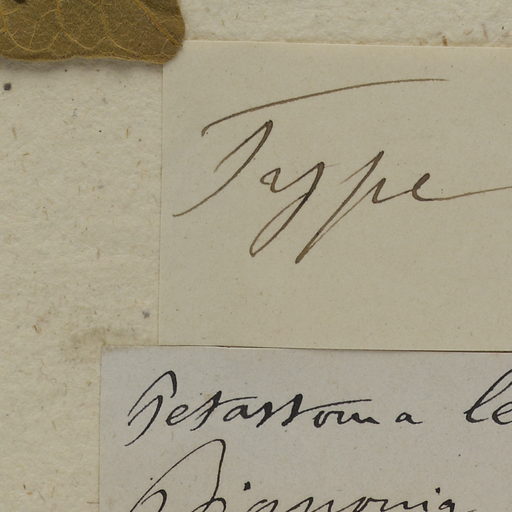 Type
Petastoma le
Bignonia